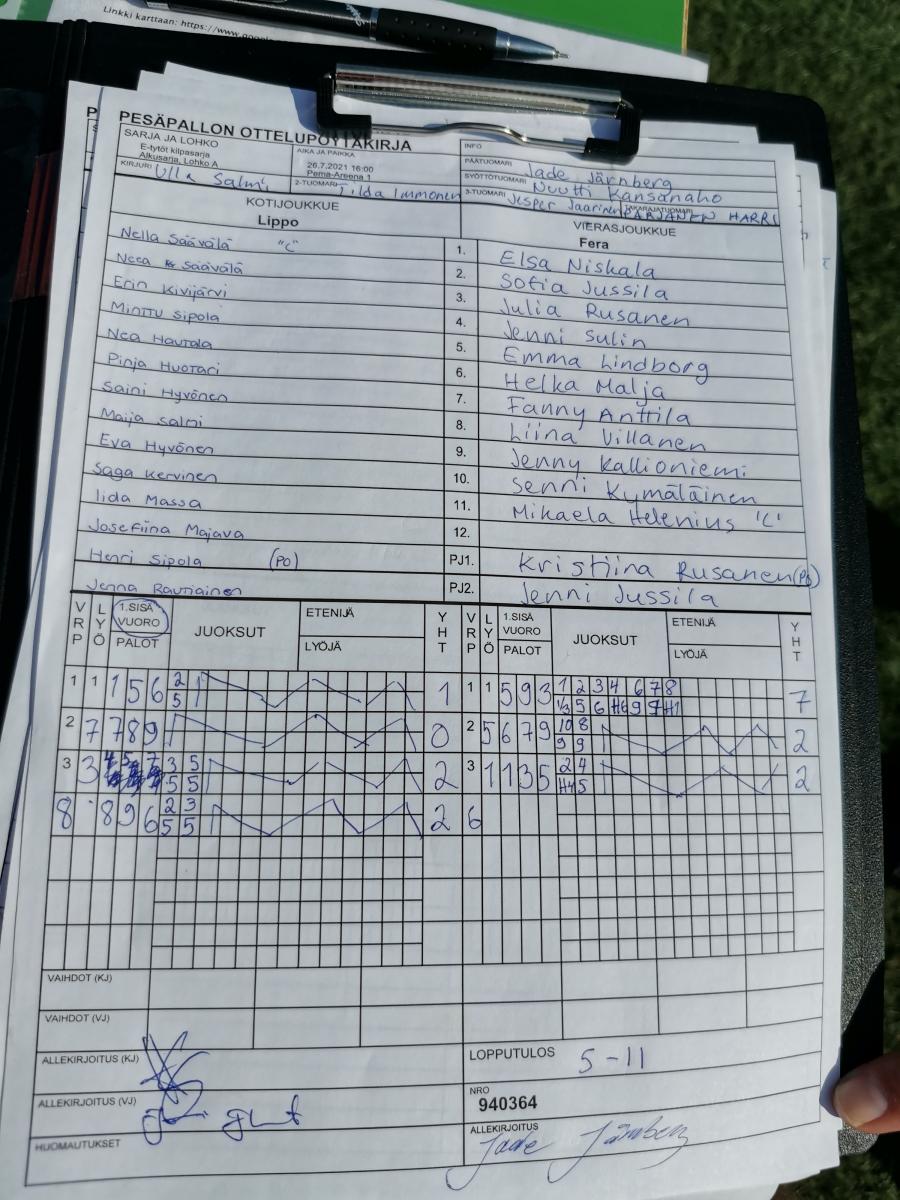 Linkki karttaan: https://www.goog
PESÄPALLON OTTELUPÖYTÄKIRJA
SARJA JA LOHKO
E-tytöt kilpasarja
Alkusarja, Lohko A
AIKA JA PAIKKA
26.7.2021 16:00
Pema-Areena 1
INFO
PÄÄTUOMARI Jade Järnberg
SYÖTTÖTUOMARI Nuutti Kansanaho
KIRJURI Ulla Salmi
2-TUOMARI Tilda Immonen
3-TUOMARI Jesper Jaarinen
TAKARAJATUOMARI PARJANEN HARRI
KOTIJOUKKUE
Lippo
VIERASJOUKKUE
Fera
Nella Säävälä "C" 1. Elsa Niskala
Neea Säävälä 2. Sofia Jussila
Erin Kivijärvi 3. Julia Rusanen
Minttu Sipola 4. Jenni Sulin
Nea Hautala 5. Emma Lindborg
Pinja Huotari 6. Helka Malja
Saini Hyvönen 7. Fanny Anttila
Maija Salmi 8. Liina Villanen
Eva Hyvönen 9. Jenny Kallioniemi
Saga Kervinen 10. Senni Kymäläinen
Iida Massa 11. Mikaela Helenius 'C'
Josefiina Majava 12.
Henri Sipola (PO) PJ1. Kristiina Rusanen (PO)
Jenna Rautiainen PJ2. Jenni Jussila
VRP LYÖ 1.SISÄ VUORO PALOT JUOKSUT ETENIJÄ LYÖJÄ YHT VRP LYÖ 1.SISÄ VUORO PALOT JUOKSUT ETENIJÄ LYÖJÄ YHT
1 1 1 5 6 2 1 1 1 5 9 3 1 2 3 4 6 7 8 7
5 5 6 9
2 7 7 8 9 0 2 5 6 7 9 10 8 2
9 9
3 3 4 5 7 3 5 2 3 1 1 3 5 2 4 2
5 5 H4 5
8 8 9 6 2 3 2 6
5 5
VAIHDOT (KJ)
VAIHDOT (VJ)
ALLEKIRJOITUS (KJ)
LOPPUTULOS 5-11
ALLEKIRJOITUS (VJ)
NRO
940364
HUOMAUTUKSET
ALLEKIRJOITUS
Jade Järnberg